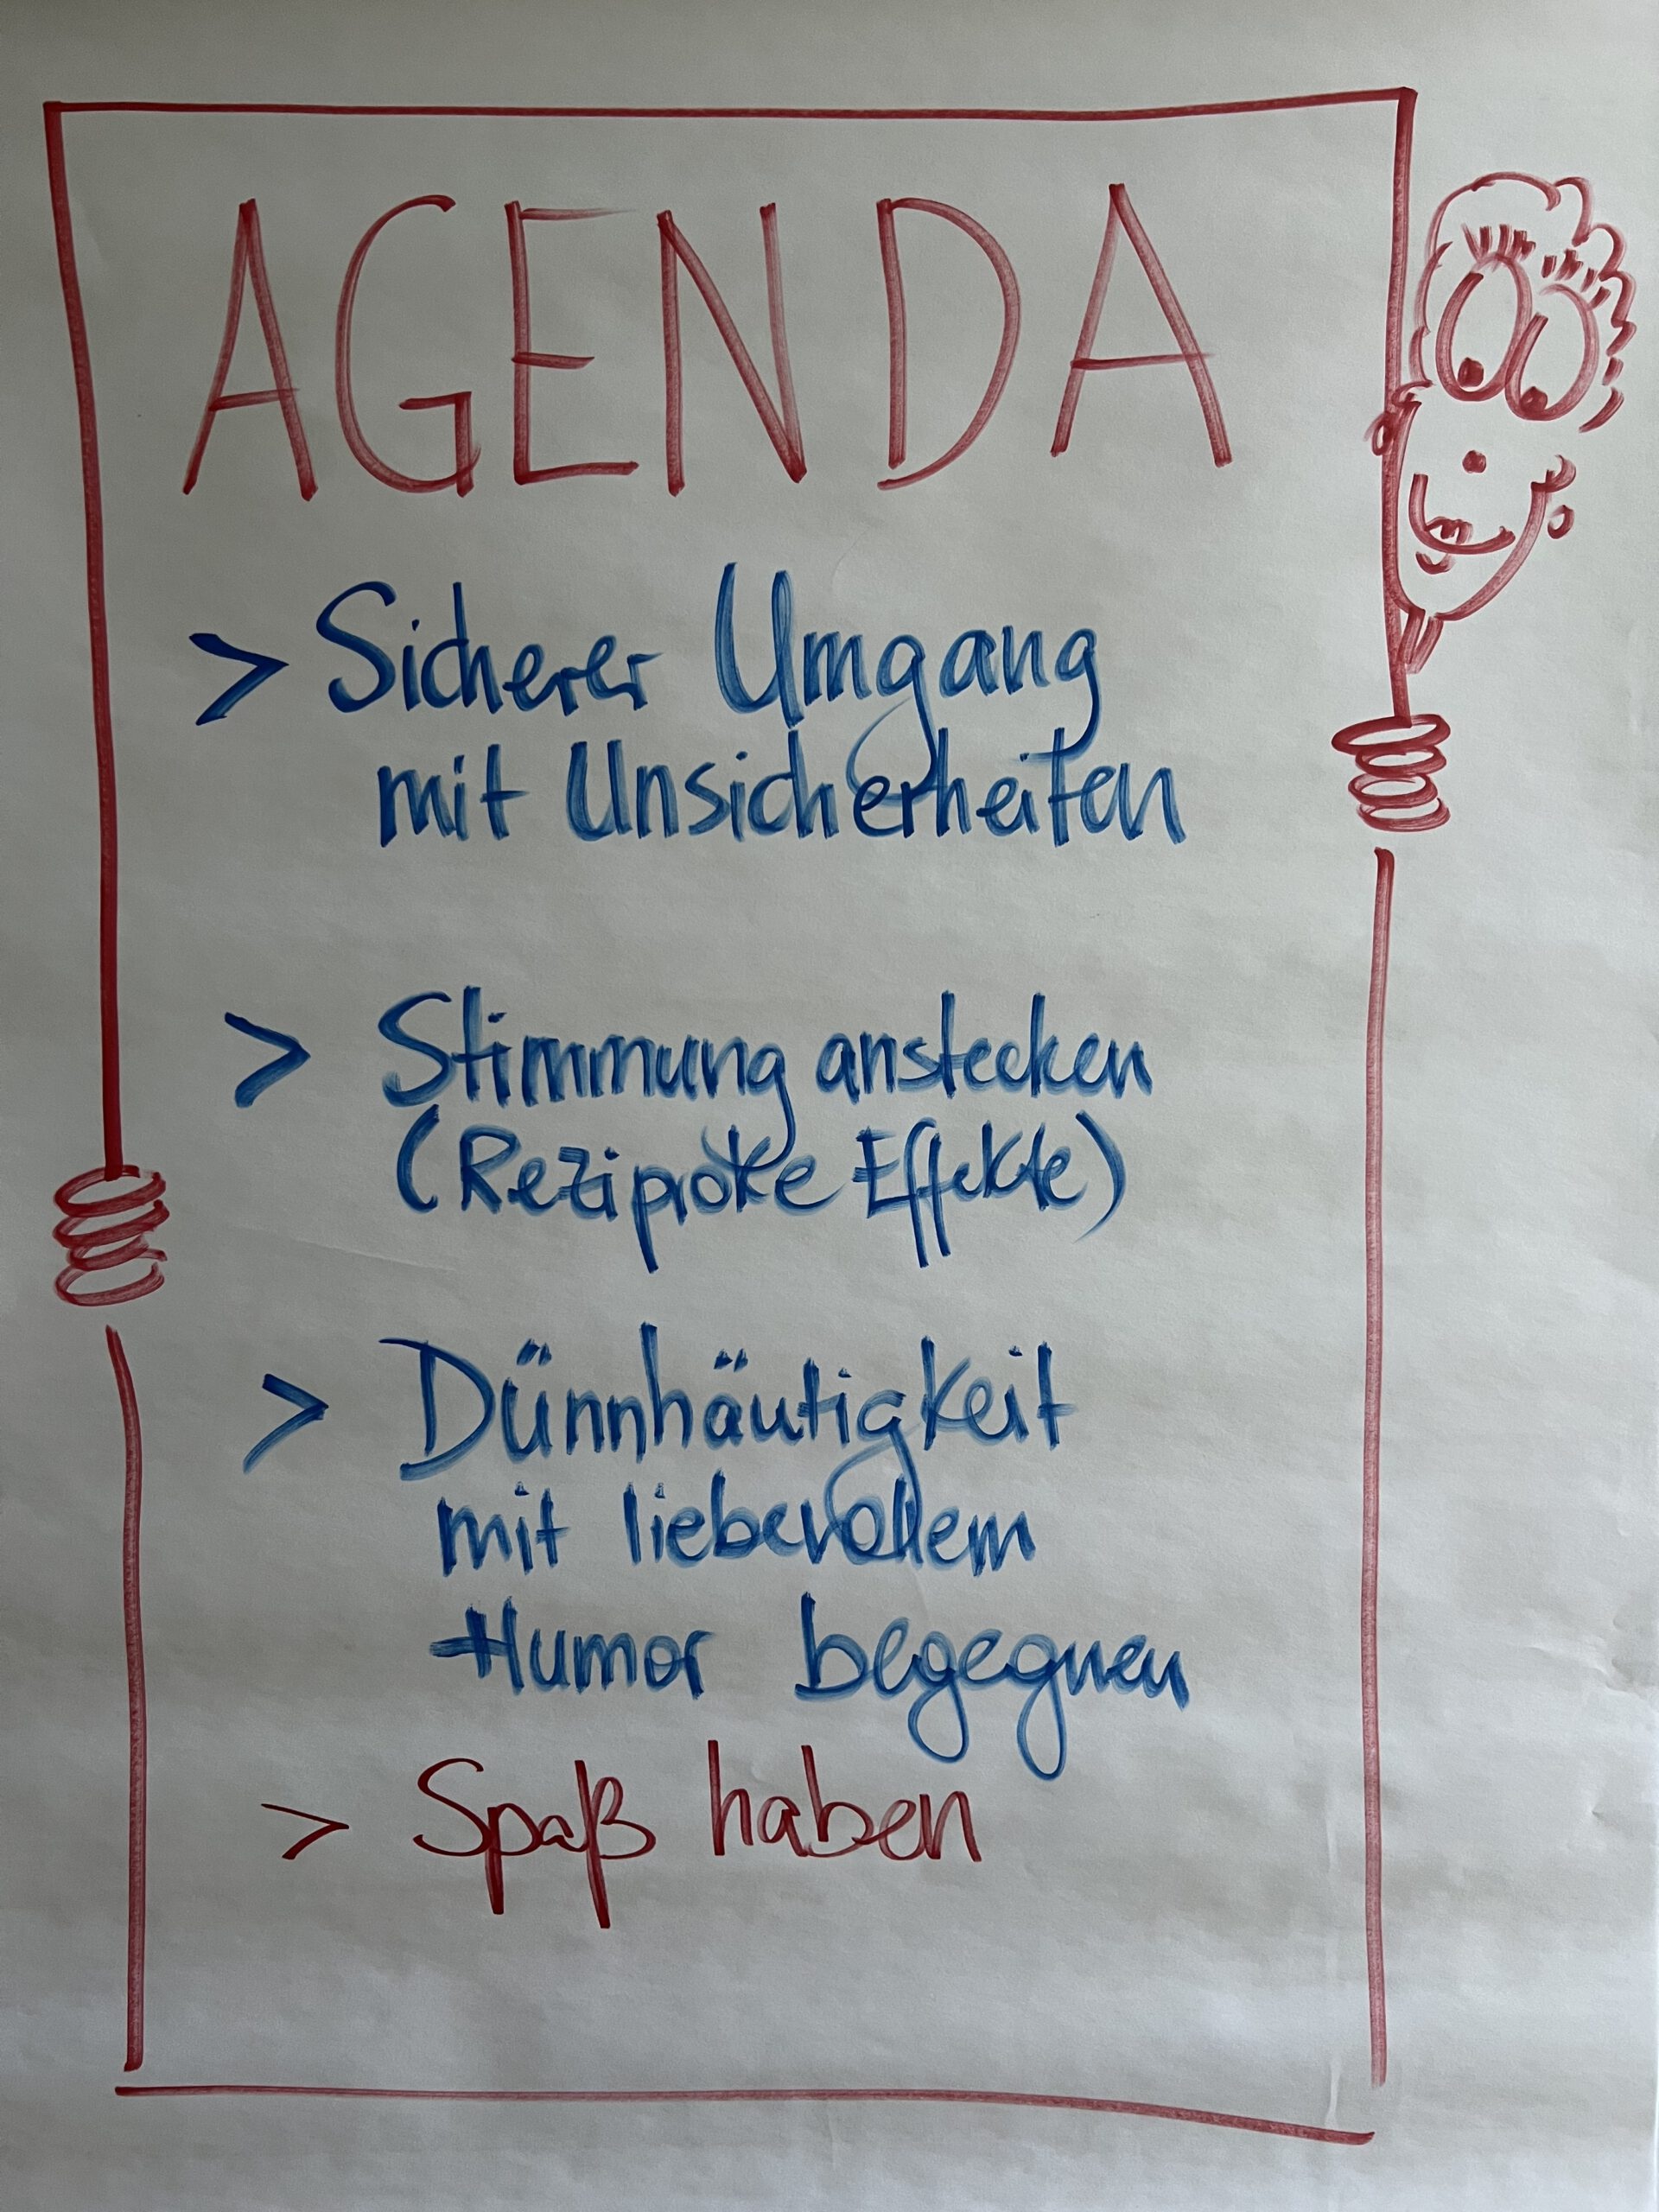 AGENDA
> Sicherer Umgang
mit Unsicherheiten
> Stimmung anstecken
(Reziproke Effekte)
> Dünnhäutigkeit
mit liebevollem
Humor begegnen
> Spaß haben